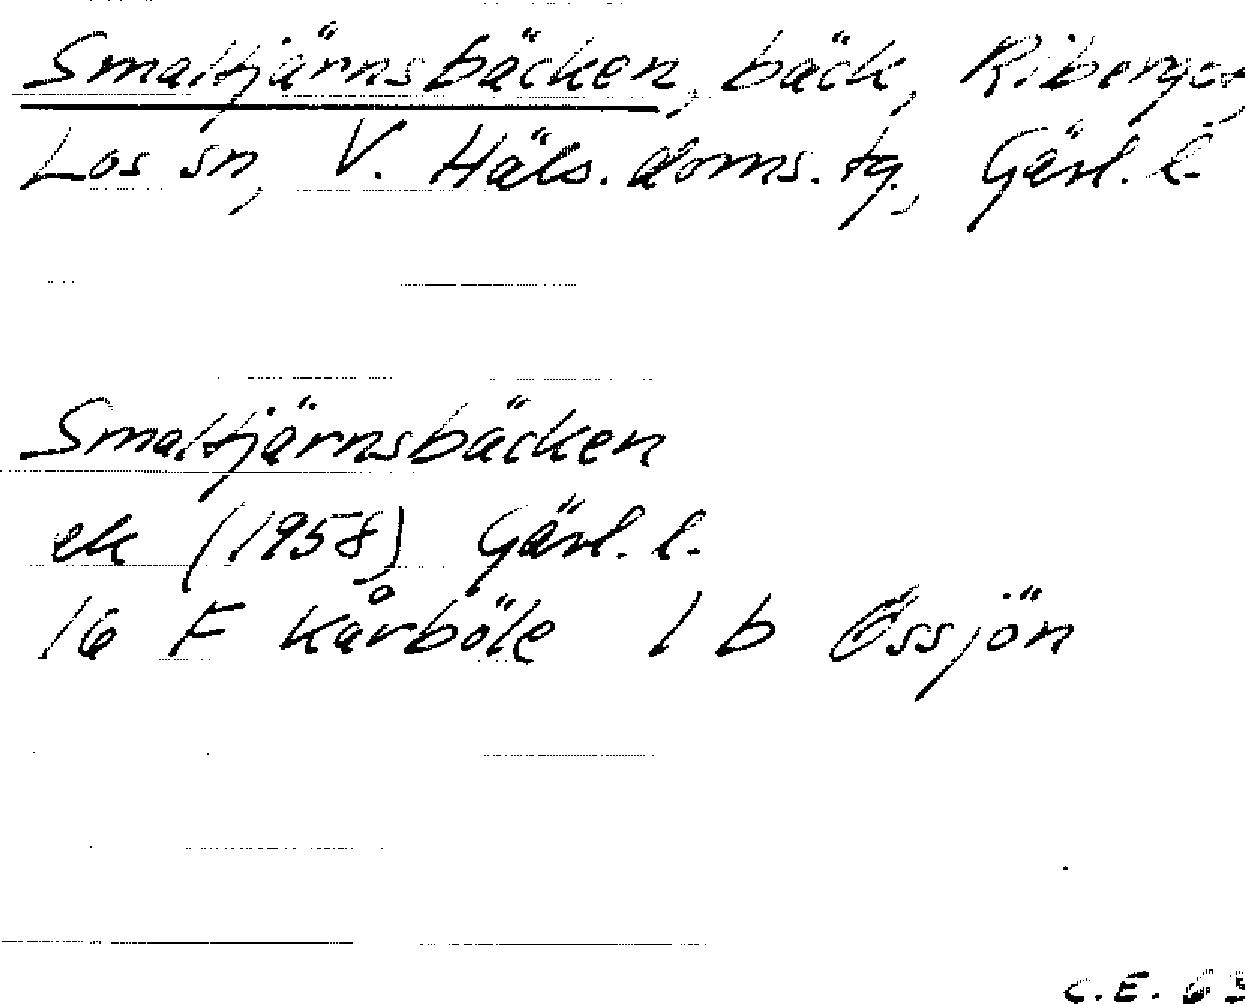 Smaltjärnsbäcken, bäck, Riberget,
Los sn, V. Häls. doms. tg., Gävl. l.
Smaltjärnsbäcken
ek (1958) Gävl. l.
16 F Kårböle 1 b Össjön
C.E. 63